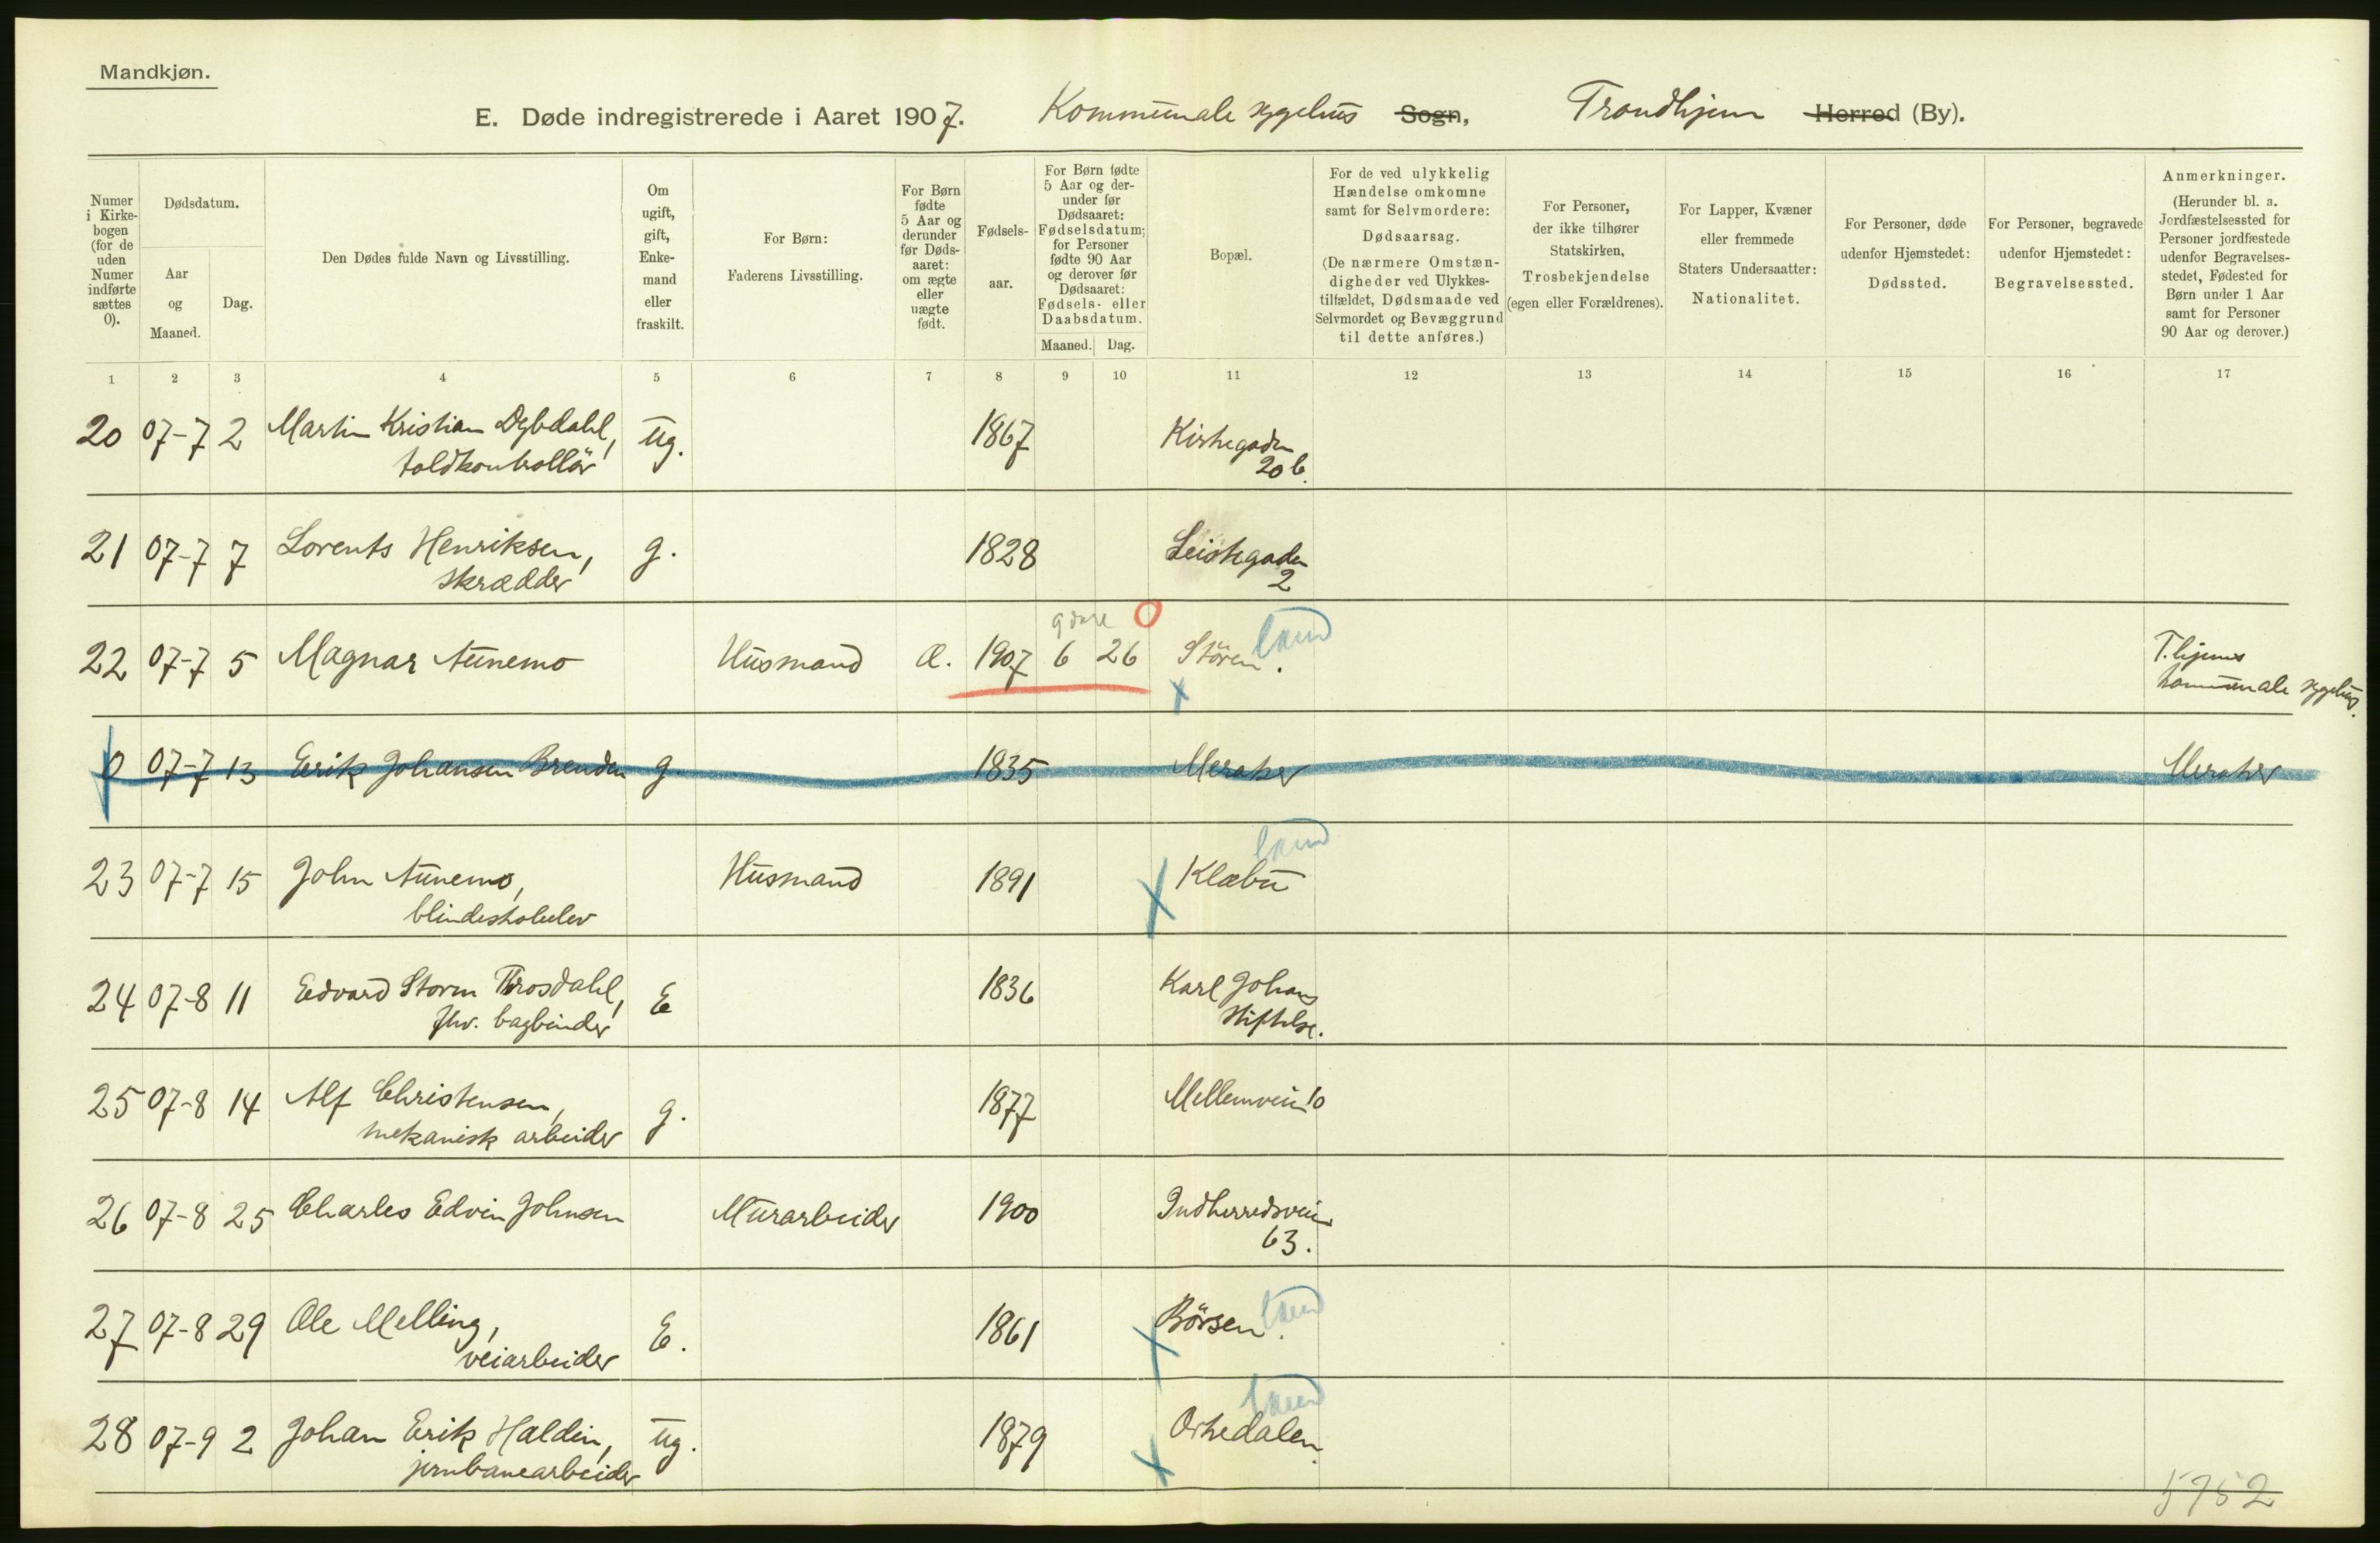 Mandkjøn.
E. Døde indregistrerede i Aaret 1907. Kommunale sygehus Sogn, Trondhjem Herred (By).
Numer i Kirkebogen (for de uden Numer indførte sættes 0).
Dødsdatum.
Aar og Maaned.
Dag.
Den Dødes fulde Navn og Livsstilling.
Om ugift, gift, Enkemand eller fraskilt.
For Børn: Faderens Livsstilling.
For Børn fødte 5 Aar og derunder før Dødsaaret: om ægte eller uægte født.
Fødselsaar.
For Børn fødte 5 Aar og derunder før Dødsaaret: Fødselsdatum; for Personer fødte 90 Aar og derover før Dødsaaret: Fødsels- eller Daabsdatum.
Maaned. Dag.
Bopæl.
For de ved ulykkelig Hændelse omkomne samt for Selvmordere: Dødsaarsag. (De nærmere Omstændigheder ved Ulykkestilfældet, Dødsmaade ved Selvmordet og Bevæggrund til dette anføres.)
For Personer, der ikke tilhører Statskirken, Trosbekjendelse (egen eller Forældrenes).
For Lapper, Kvæner eller fremmede Staters Undersaatter: Nationalitet.
For Personer, døde udenfor Hjemstedet: Dødssted.
For Personer, begravede udenfor Hjemstedet: Begravelsessted.
Anmerkninger. (Herunder bl. a. Jordfæstelsessted for Personer jordfæstede udenfor Begravelsesstedet, Fødested for Børn under 1 Aar samt for Personer 90 Aar og derover.)
1 2 3 4 5 6 7 8 9 10 11 12 13 14 15 16 17
20 07-7 2 Martin Kristian Dybdahl, ug. 1867 Kirkegaden
toldkontrollör 20 b.
21 07-7 7 Lorents Henriksen, g. 1828 Leistegaden
skrædder 2
9 dage 0 land
22 07-7 5 Magnar Aunemo Husmand Æ. 1907 6 26 Stören. T.hjems
x kommunale sygehus.
0 07-7 13 Erik Johansen Brenden g 1835 Meraker Meraker
land
23 07-7 15 John Aunemo, Husmand 1891 x Klæbu
blindeskoleelev
24 07-8 11 Edvard Storm Throsdahl, E 1836 Karl Johans
fhv. bagbinder Stiftelse.
25 07-8 14 Alf Christensen, g. 1877 Mellemveien 10
mekanisk arbeider
26 07-8 25 Charles Edvin Johnsen Murarbeider 1900 Indherredsveien
63.
27 07-8 29 Ole Melling, E. 1861 x Börsen. land
veiarbeider
land
28 07-9 2 Johan Erik Haldin, ug. 1879 x Orkedalen.
jernbanearbeider
5752